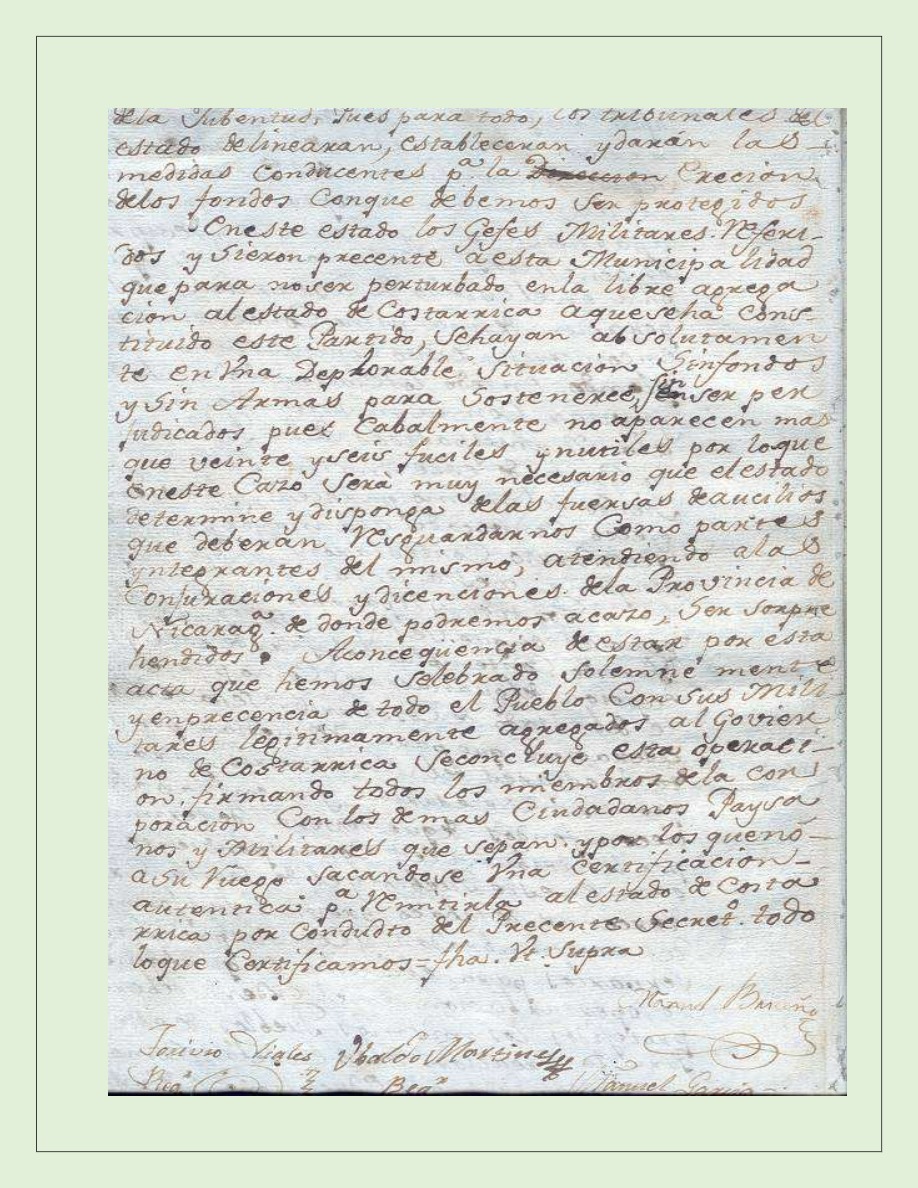 dela Jubentud, Pues para todo, los tribunales del
estado delinearan, estableceran y daràn las
medidas Conducentes p.ª la Direccion Crecion
delos fondos Conque debemos Ser protegidos
Eneste estado los Gefes Militares Referi-
dos ysieron precente aesta Municipalidad
que para noser perturbado enla libre agrega
cion alestado de Costarrica aqueseha Cons-
tituido este Partido, Sehayan absolutamen
te en Vna Deplorable Situacion Sinfondos
y Sin Armas para Sostenerce, sin ser per
judicados pues Cabalmente no aparecen mas
que veinte y seis fuciles ynutiles por loque
eneste Cazo Serà muy necesario que elestado
determine y disponga delas fuersas deaucilios
que deberàn Resguardarnos Como partes
yntegrantes del mismo, atendiendo alas
Conjuraciones y dicenciones dela Provincia de
Nicarag.ª de donde podremos acazo, Ser Sorpre
hendidos. Aconceqüencia de estar por esta
acta que hemos Selebrado Solemnemente
y enprecencia de todo el Pueblo Con Sus Mili
tares legitimamente agregados alGovier
no de Costarrica Seconcluye esta operaci-
on, firmando todos los miembros dela Cor
poracion Con los demas Ciudadanos Paysa
nos y Militares que sepan, ypor los quenó-
aSu Ruego Sacandose Vna Certificacion-
autentica p.ª Remitirla alestado de Costa
rrica por Condudto del Precente Secret.º todo
loque Certificamos=fha. Vt. Supra
Manuel Briceño
Torivio Viales Vbaldo Martinez
Reg.r Reg.r Manuel Garcia